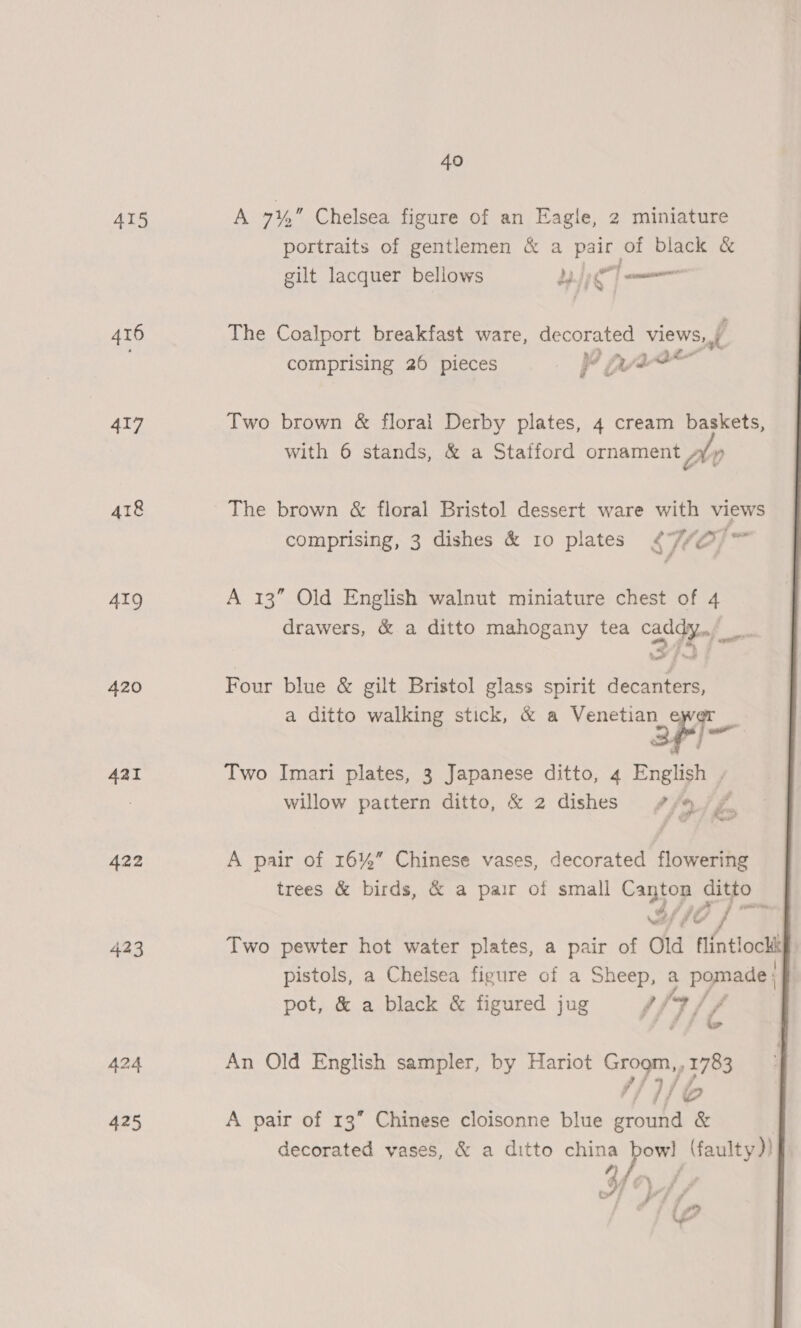 40
415 A 7½" Chelsea figure of an Eagle, 2 miniature
portraits of gentlemen & a pair of black &
gilt lacquer bellows
416 The Coalport breakfast ware, decorated views,
comprising 26 pieces
417 Two brown & floral Derby plates, 4 cream baskets,
with 6 stands, & a Stafford ornament
418 The brown & floral Bristol dessert ware with views
comprising, 3 dishes & 10 plates
419 A 13" Old English walnut miniature chest of 4
drawers, & a ditto mahogany tea caddy
420 Four blue & gilt Bristol glass spirit decanters,
a ditto walking stick, & a Venetian ewer
421 Two Imari plates, 3 Japanese ditto, 4 English
willow pattern ditto, & 2 dishes
422 A pair of 16½" Chinese vases, decorated flowering
trees & birds, & a pair of small Canton ditto
423 Two pewter hot water plates, a pair of Old flintlock
pistols, a Chelsea figure of a Sheep, a pomade
pot, & a black & figured jug
424 An Old English sampler, by Hariot Groom, 1783
425 A pair of 13" Chinese cloisonne blue ground &
decorated vases, & a ditto china bowl (faulty)